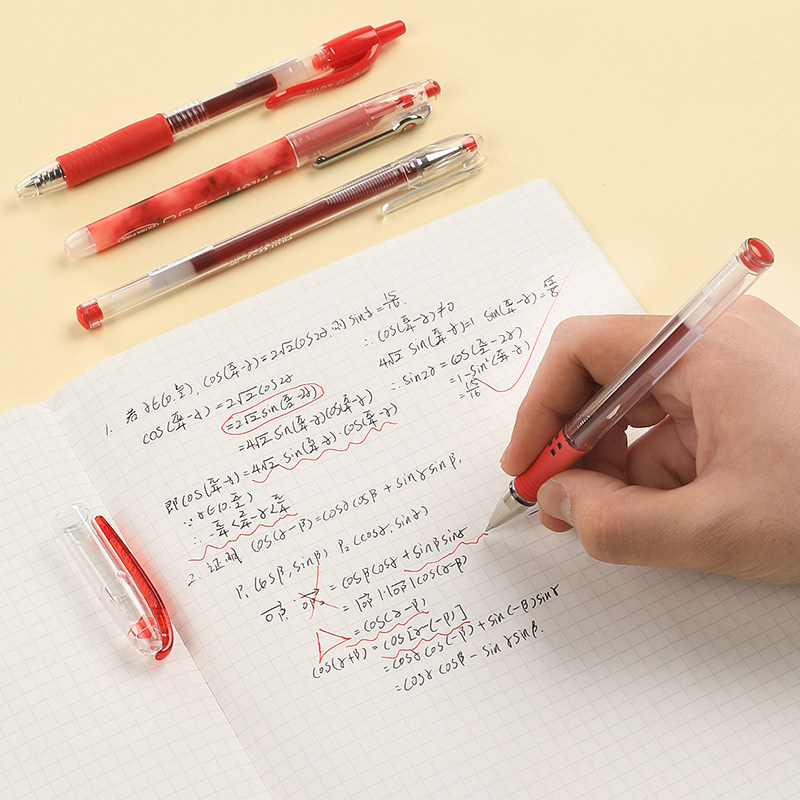 PILOT
1. 若 α∈(0,π/2), cos(π/4-α)=2√2cos2α, 则 sin2α=15/16.
cos(π/4-α)=2√2cos2α
=2√2sin(π/2-2α)
=4√2sin(π/4-α)cos(π/4-α)
即cos(π/4-α)=4√2sin(π/4-α)·cos(π/4-α)
∵α∈(0,π/2)
∴-π/4<π/4-α<π/4
∴cos(π/4-α)≠0
4√2sin(π/4-α)=1 sin(π/4-α)=√2/8
∴sin2α=cos(π/2-2α)
=1-sin²(π/4-α)
=15/16
2. 证明 cos(α-β)=cosαcosβ+sinαsinβ,
P₁(cosβ,sinβ) P₂(cosα,sinα)
OP₁·OP₂=cosβcosα+sinβsinα
=|OP₁|·|OP₂|cos(α-β)
=cos(α-β)
cos(α+β)=cos[α-(-β)]
=cosαcos(-β)+sin(-β)sinα
=cosαcosβ-sinαsinβ.